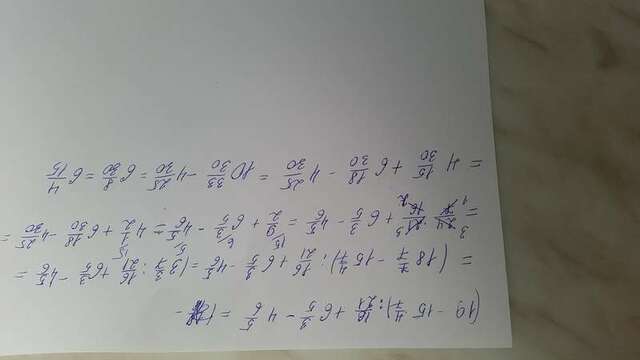 (19 - 15 4/7) : 16/21 + 6 3/5 - 4 5/6 = (
= (18 7/7 - 15 4/7) : 16/21 + 6 3/5 - 4 5/6 = (3 3/7 : 16/21 + 6 3/5 - 4 5/6 =
= 24/7 · 21/16 + 6 3/5 - 4 5/6 = 9/2 + 6 3/5 - 4 5/6 = 4 1/2 + 6 18/30 - 4 25/30 =
= 4 15/30 + 6 18/30 - 4 25/30 = 10 33/30 - 4 25/30 = 6 8/30 = 6 4/15